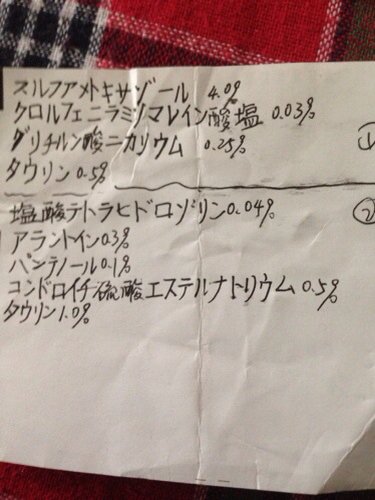 スルファメトキサゾール 4.0%
クロルフェニラミンマレイン酸塩 0.03%
グリチルン酸ニカリウム 0.25% ①
タウリン 0.5%
塩酸テトラヒドロゾリン0.04% ②
アラントイン0.3%
パンテノール0.1%
コンドロイチ硫酸エステルナトリウム 0.5%
タウリン1.0%